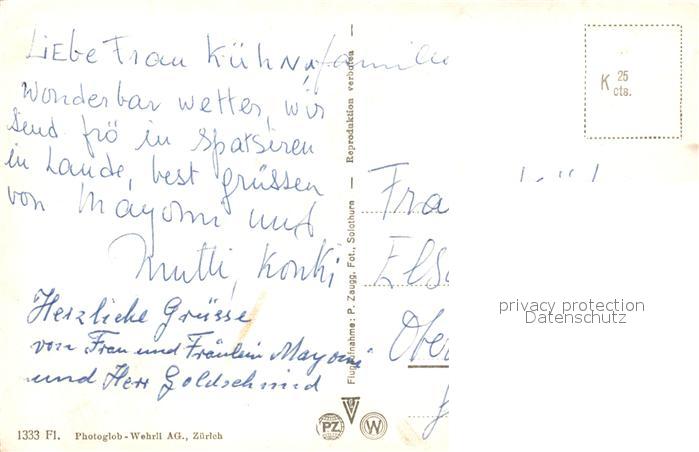 Liebe Frau Kühn, familie
Wonderbar wetter, wir
send frö in spatsiren
in Lande, best grüssen
von Mayomi und
Mutti, Konki
Herzliche Grüsse
von Frau und Fräulein Mayomi
und Herr Goldschmid
1333 Fl. Photoglob-Wehrli AG., Zürich
Flugaufnahme: P. Zaugg, Fot., Solothurn — Reproduktion verboten —
PZ
W
K 25 cts.
Fra
Els
Ober
privacy protection
Datenschutz